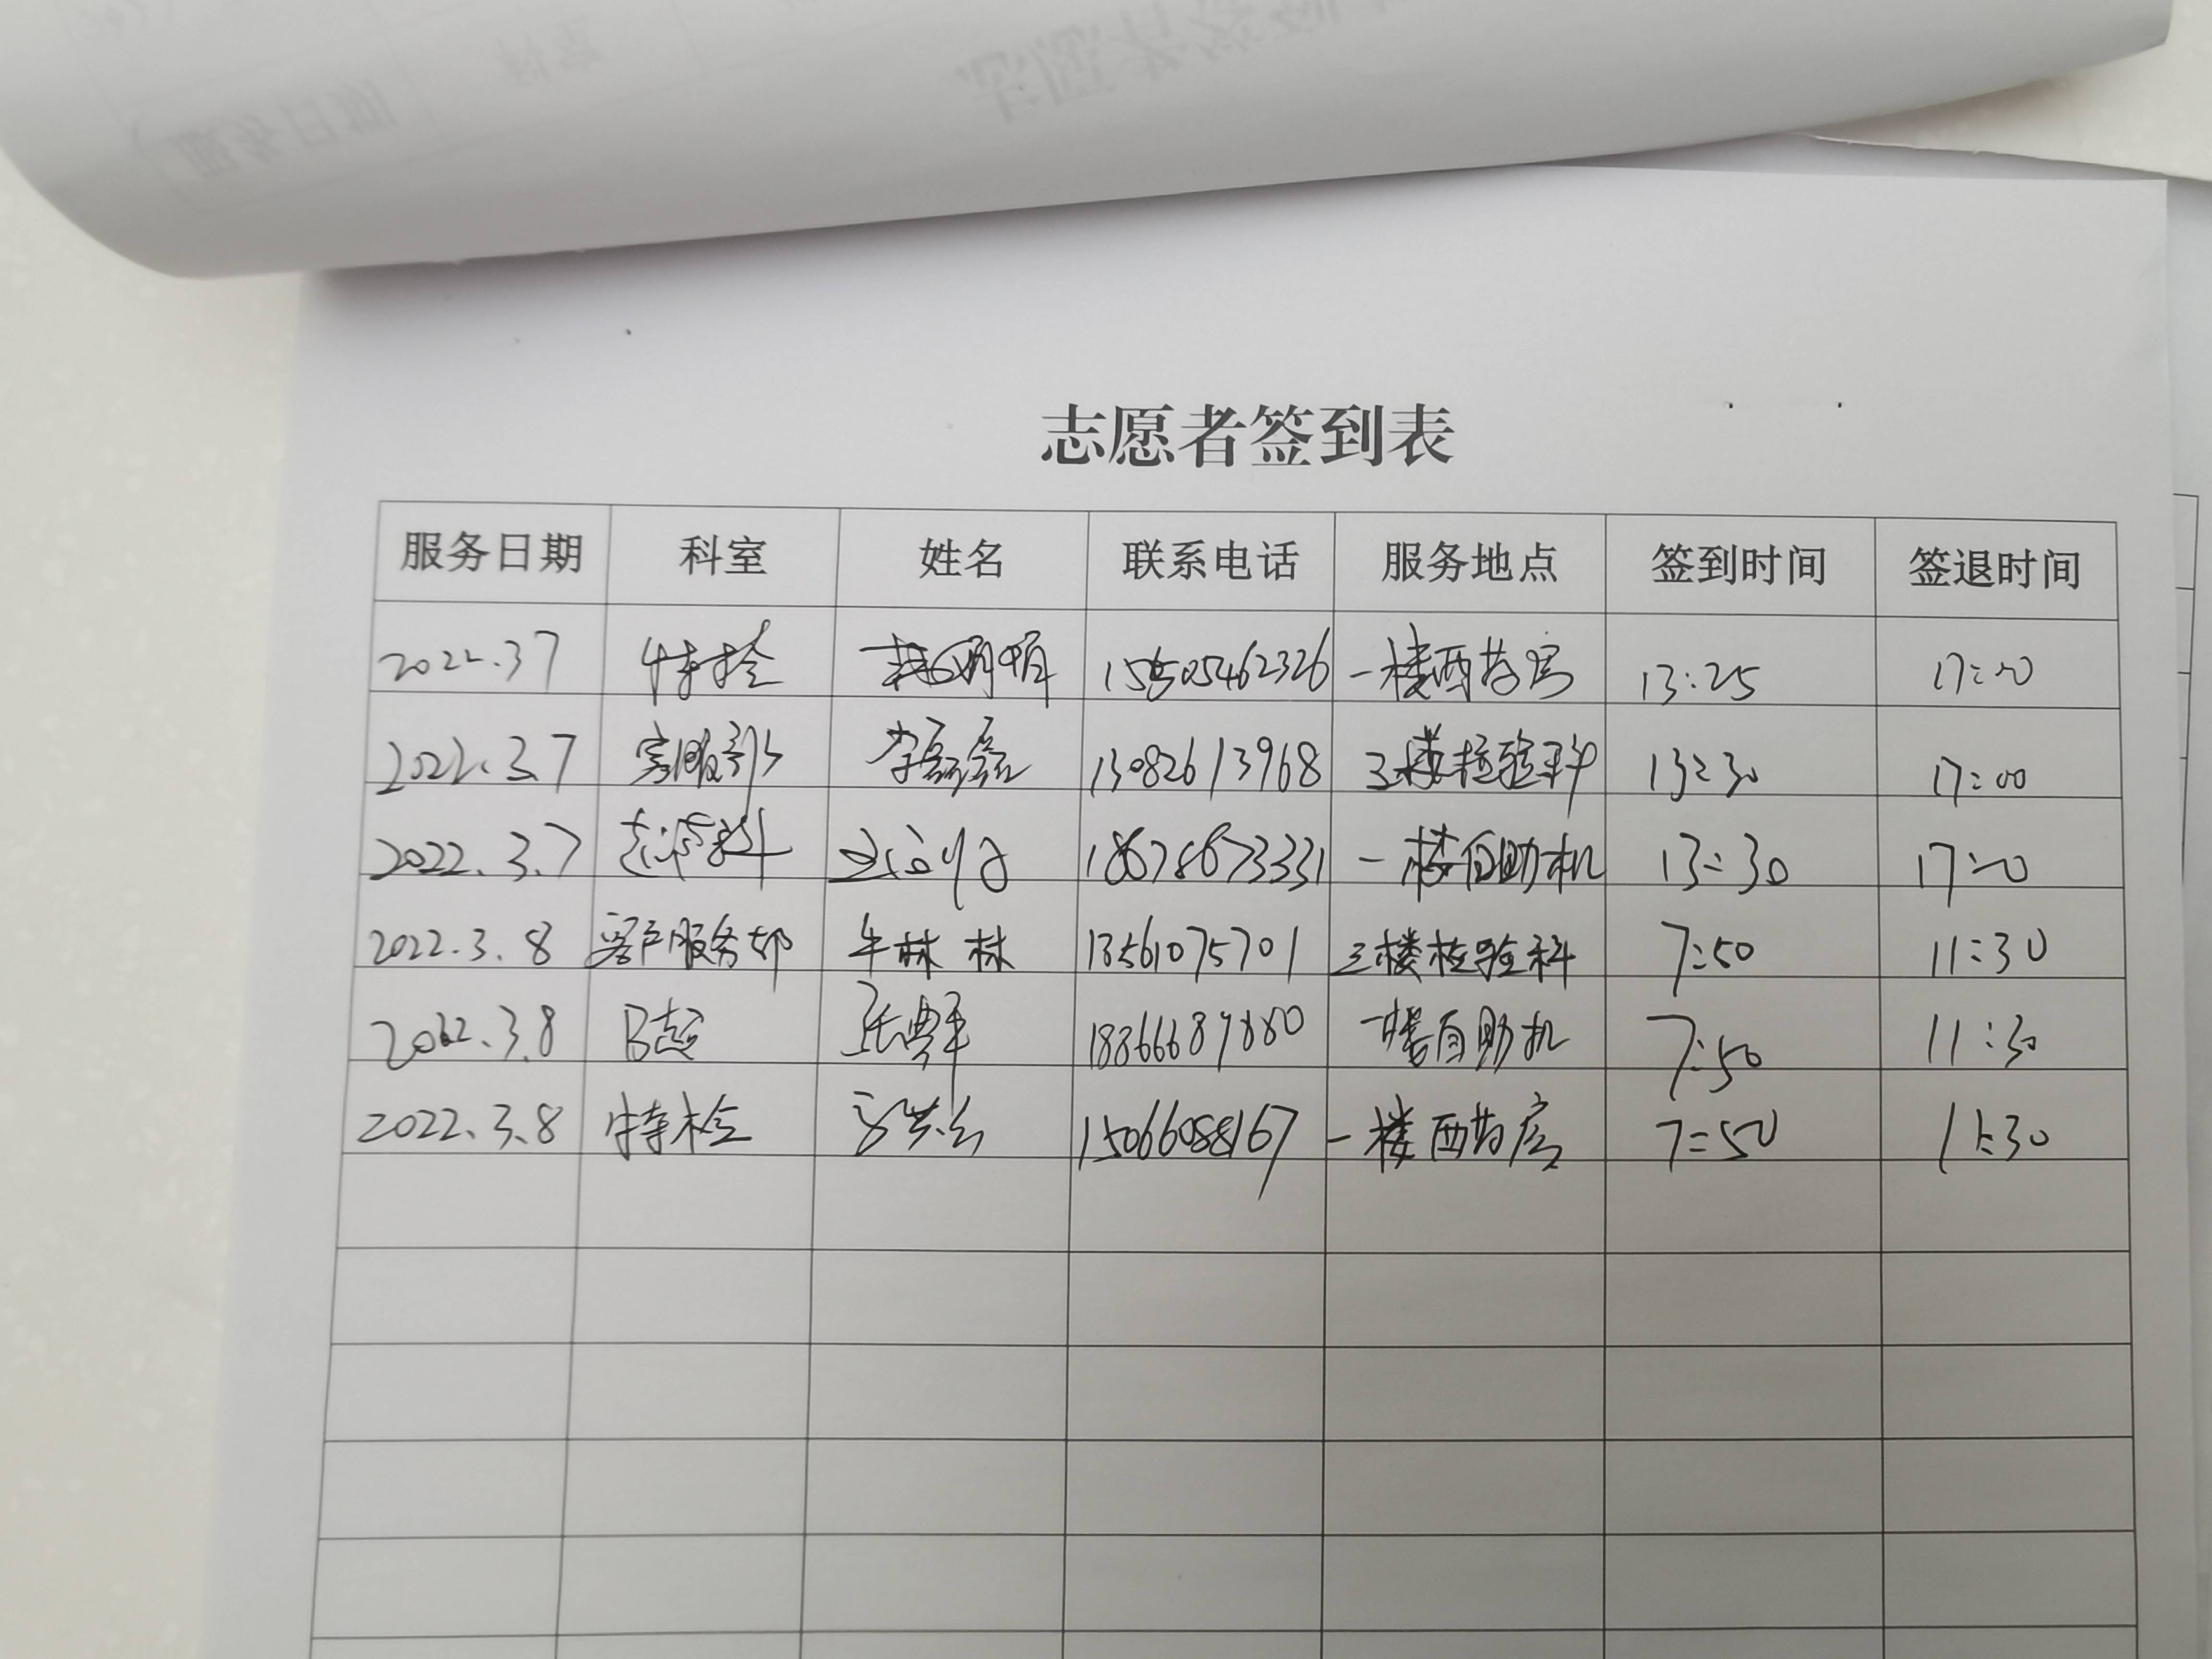 志愿者签到表
服务日期 科室 姓名 联系电话 服务地点 签到时间 签退时间
2022.3.7 特检 15505462326 一楼西药房 13:25 17:00
2022.3.7 客服部 李磊磊 13082613968 三楼检验科 13:30 17:00
2022.3.7 18678673331 一楼自助机 13:30 17:00
2022.3.8 客户服务部 牛林林 13561075701 三楼检验科 7:50 11:30
2022.3.8 B超 18366689880 一楼自助机 7:50 11:30
2022.3.8 特检 15066088167 一楼西药房 7:50 11:30